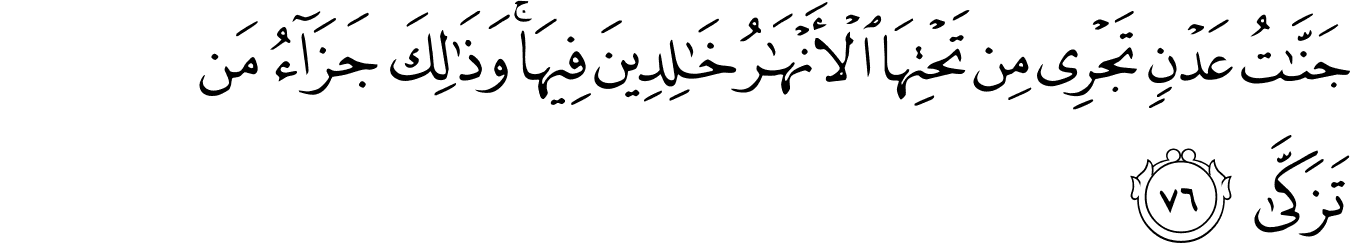 جَنَّـٰتُ عَدْنٍ تَجْرِى مِن تَحْتِهَا ٱلْأَنْهَـٰرُ خَـٰلِدِينَ فِيهَا ۚ وَذَٰلِكَ جَزَآءُ مَن
تَزَكَّىٰ ٧٦